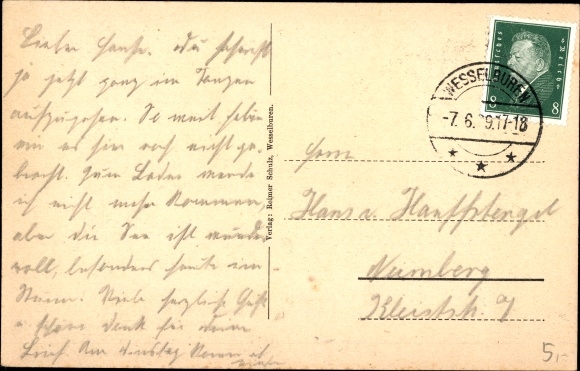 Lieber Hans. Du scheinst
ja jetzt ganz im Tanzen
aufzugehen. So weit haben
wir es hier noch nicht ge-
bracht. Zum Baden werde
ich nicht mehr kommen,
aber die See ist wunder
voll, besonders heute im
Sturm. Viele herzliche Grüße
u. schönen Dank für deinen
Brief. Am Dienstag
Verlag: Reimer Schulz, Wesselburen.
Deutsches Reich
8 8
WESSELBUREN
-7.6. 9.17-18
Herrn
Hans v. Hanffstengel
Nürnberg
Kleiststr. 7
5,-